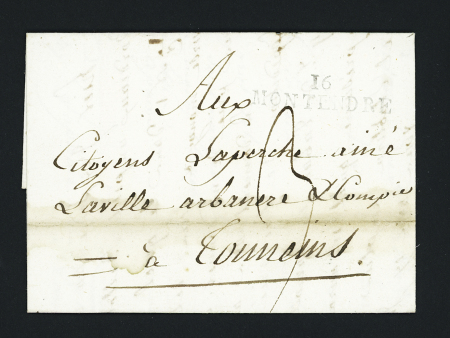 16
MONTENDRE
Aux
Citoyens Laperche ainé
Laville arbanere & Compie
à Tonneins